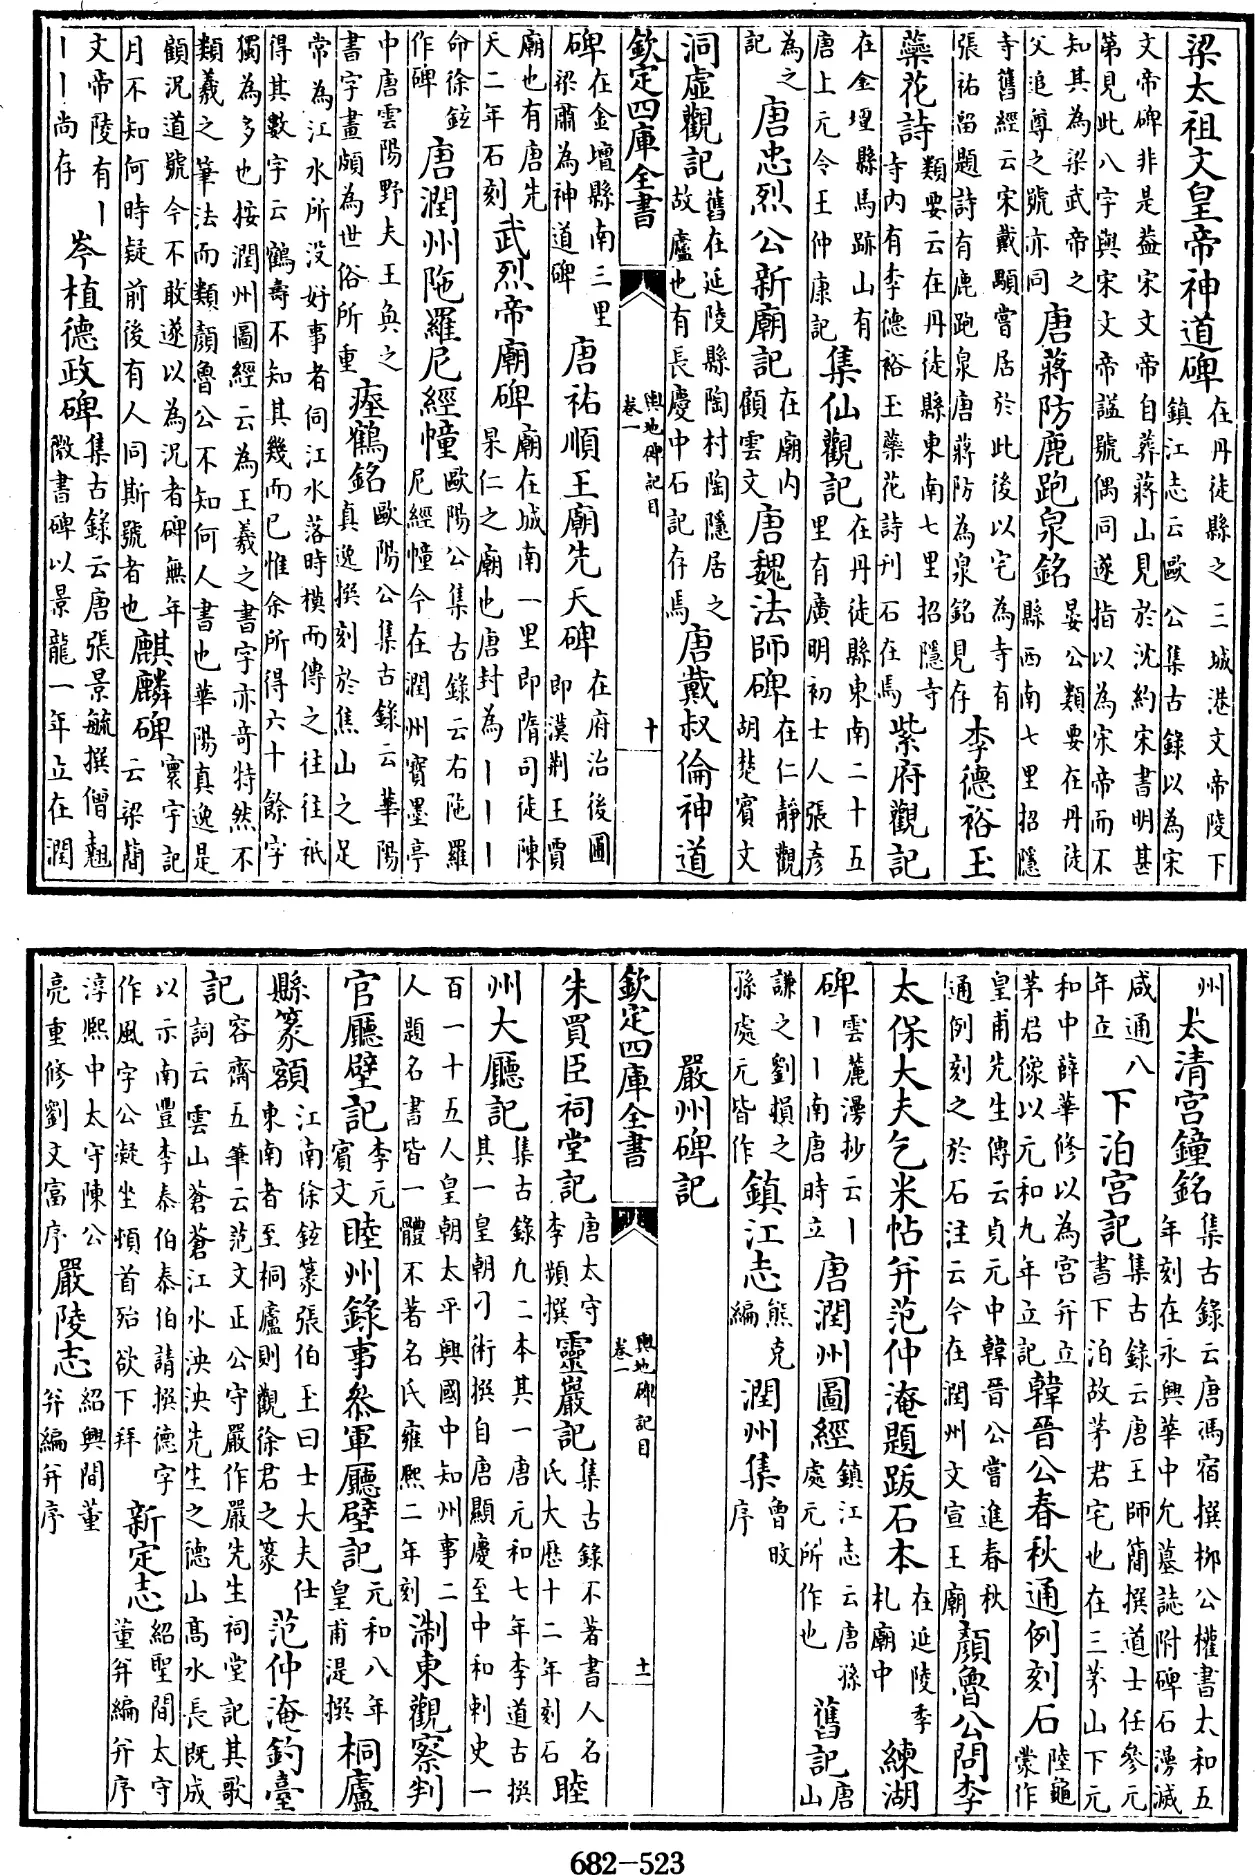 梁太祖文皇帝神道碑 在丹徒縣之三城港文帝陵下 鎮江志云歐公集古錄以為宋
文帝碑非是葢宋文帝自葬蔣山見於沈約宋書明甚 第見此八字與宋文帝謚號偶同遂指以為宋帝而不
知其為梁武帝之 父追尊之號亦同 唐蔣防鹿跑泉銘 晏公類要在丹徒 縣西南七里招隱
寺舊經云宋戴顒嘗居於此後以宅為寺有 張祐留題詩有鹿跑泉唐蔣防為泉銘見存 李德裕玉
蘂花詩 類要云在丹徒縣東南七里招隱寺 寺内有李德裕玉蘂花詩刊石在焉 紫府觀記
在金壇縣馬跡山有 唐上元令王仲康記 集仙觀記 在丹徒縣東南二十五 里有廣明初士人張彥
為之 記 唐忠烈公新廟記 在廟内 顧雲文 唐魏法師碑 在仁靜觀 胡楚賓文
洞虛觀記 舊在延陵縣陶村陶隱居之 故廬也有長慶中石記存焉 唐戴叔倫神道
欽定四庫全書 輿地碑記目 卷一 十
碑 在金壇縣南三里 梁肅為神道碑 唐祐順王廟先天碑 在府治後圃 即漢荆王賈
廟也有唐先 天二年石刻 武烈帝廟碑 廟在城南一里即隋司徒陳 杲仁之廟也唐封為丨丨丨
命徐鉉 作碑 唐潤州陁羅尼經幢 歐陽公集古錄云右陁羅 尼經幢今在潤州寶墨亭
中唐雲陽野夫王奐之 書字畫頗為世俗所重 瘞鶴銘 歐陽公集古錄云華陽 真逸撰刻於焦山之足
常為江水所没好事者伺江水落時模而傳之往往祇 得其數字云鶴壽不知其幾而已惟余所得六十餘字
獨為多也按潤州圖經云為王羲之書字亦竒特然不 類羲之筆法而類顏魯公不知何人書也華陽真逸是
顧况道號今不敢遂以為况者碑無年 月不知何時疑前後有人同斯號者也 麒麟碑 寰宇記 云梁簡
文帝陵有丨 丨丨尚存 岑植德政碑 集古錄云唐張景毓撰僧翹 微書碑以景龍一年立在潤
州 太清宮鐘銘 集古錄云唐馮宿撰栁公權書太和五 年刻在永興華中允墓誌附碑石漫滅
咸通八 年立 下泊宮記 集古錄云唐王師簡撰道士任參元 書下泊故茅君宅也在三茅山下元
和中薛華修以為宮并立 茅君像以元和九年立記 韓晉公春秋通例刻石 陸龜 蒙作
皇甫先生傳云貞元中韓晉公嘗進春秋 通例刻之於石注云今在潤州文宣王廟 顏魯公問李
太保大夫乞米帖并范仲淹題跋石本 在延陵季 札廟中 練湖
碑 雲麓漫抄云丨 丨丨南唐時立 唐潤州圖經 鎮江志云唐孫 處元所作也 舊記 唐 山
謙之劉損之 孫處元皆作 鎮江志 熊克 編 潤州集 曾旼 序
嚴州碑記
欽定四庫全書 輿地碑記目 卷一 十一
朱買臣祠堂記 唐太守 李頻撰 靈巖記 集古錄不著書人名 氏大歴十二年刻石 睦
州大廳記 集古錄凡二本其一唐元和七年李道古撰 其一皇朝刁術撰自唐顯慶至中和刺史一
百一十五人皇朝太平興國中知州事二 人題名書皆一體不著名氏雍熙二年刻 淛東觀察判
官廳壁記 李元 賓文 睦州錄事叅軍廳壁記 元和八年 皇甫湜撰 桐廬
縣篆額 江南徐鉉篆張伯玉曰士大夫仕 東南者至桐廬則觀徐君之篆 范仲淹釣臺
記 容齋五筆云范文正公守嚴作嚴先生祠堂記其歌 詞云雲山蒼蒼江水泱泱先生之德山髙水長既成
以示南豐李泰伯泰伯請撰德字 作風字公凝坐頓首殆欲下拜 新定志 紹聖間太守 董弅編弅序
淳熙中太守陳公 亮重修劉文富序 嚴陵志 紹興間董 弅編弅序
682-523